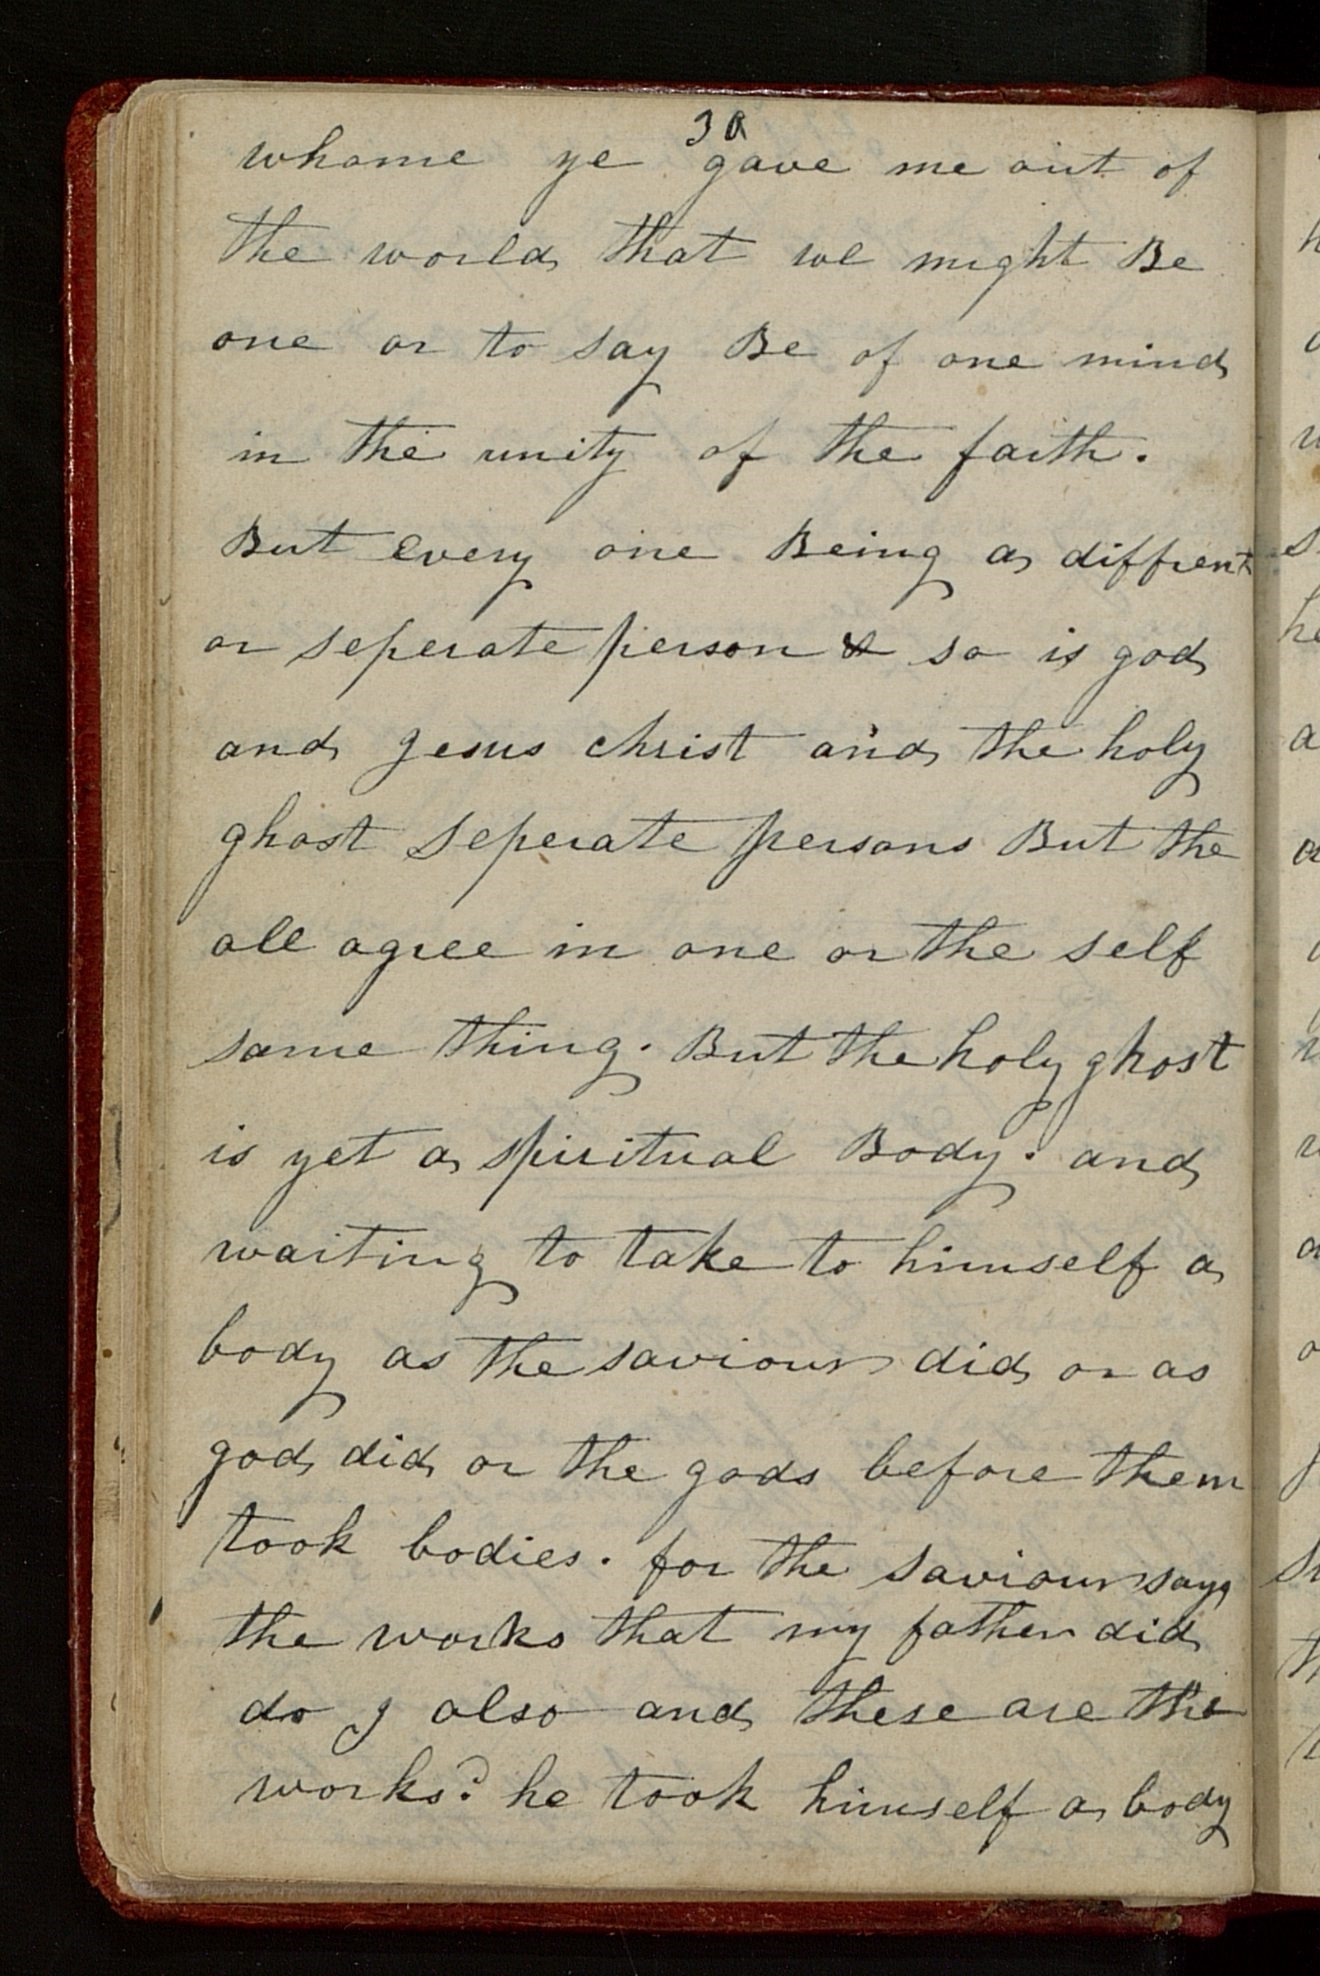 30
whome ye gave me out of
the world that we might Be
one or to say Be of one mind
in the unity of the faith.
But every one Being a diffrent
or seperate person & so is god
and jesus christ and the holy
ghost seperate persons But the
all agree in one or the self
same thing. But the holy ghost
is yet a spiritual Body. and
waiting to take to himself a
body as the saviour did or as
god did or the gods before them
took bodies. for the saviour says
the works that my father did
do I also and these are the
works? he took himself a body